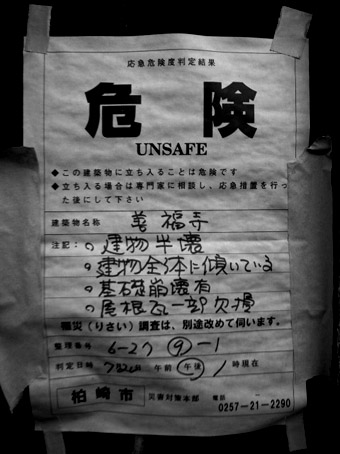 応急危険度判定結果
危険
UNSAFE
◆この建築物に立ち入ることは危険です
◆立ち入る場合は専門家に相談し、応急措置を行っ
た後にして下さい
建築物名称 善福寺
注記：。建物半壊
。建物全体に傾いている
。基礎崩壊有
。屋根瓦一部欠損
罹災（りさい）調査は、別途改めて伺います。
整理番号 6-27 ⑨-1
判定日時 午前 午後 1時現在
柏崎市 災害対策本部 電話 0257-21-2290